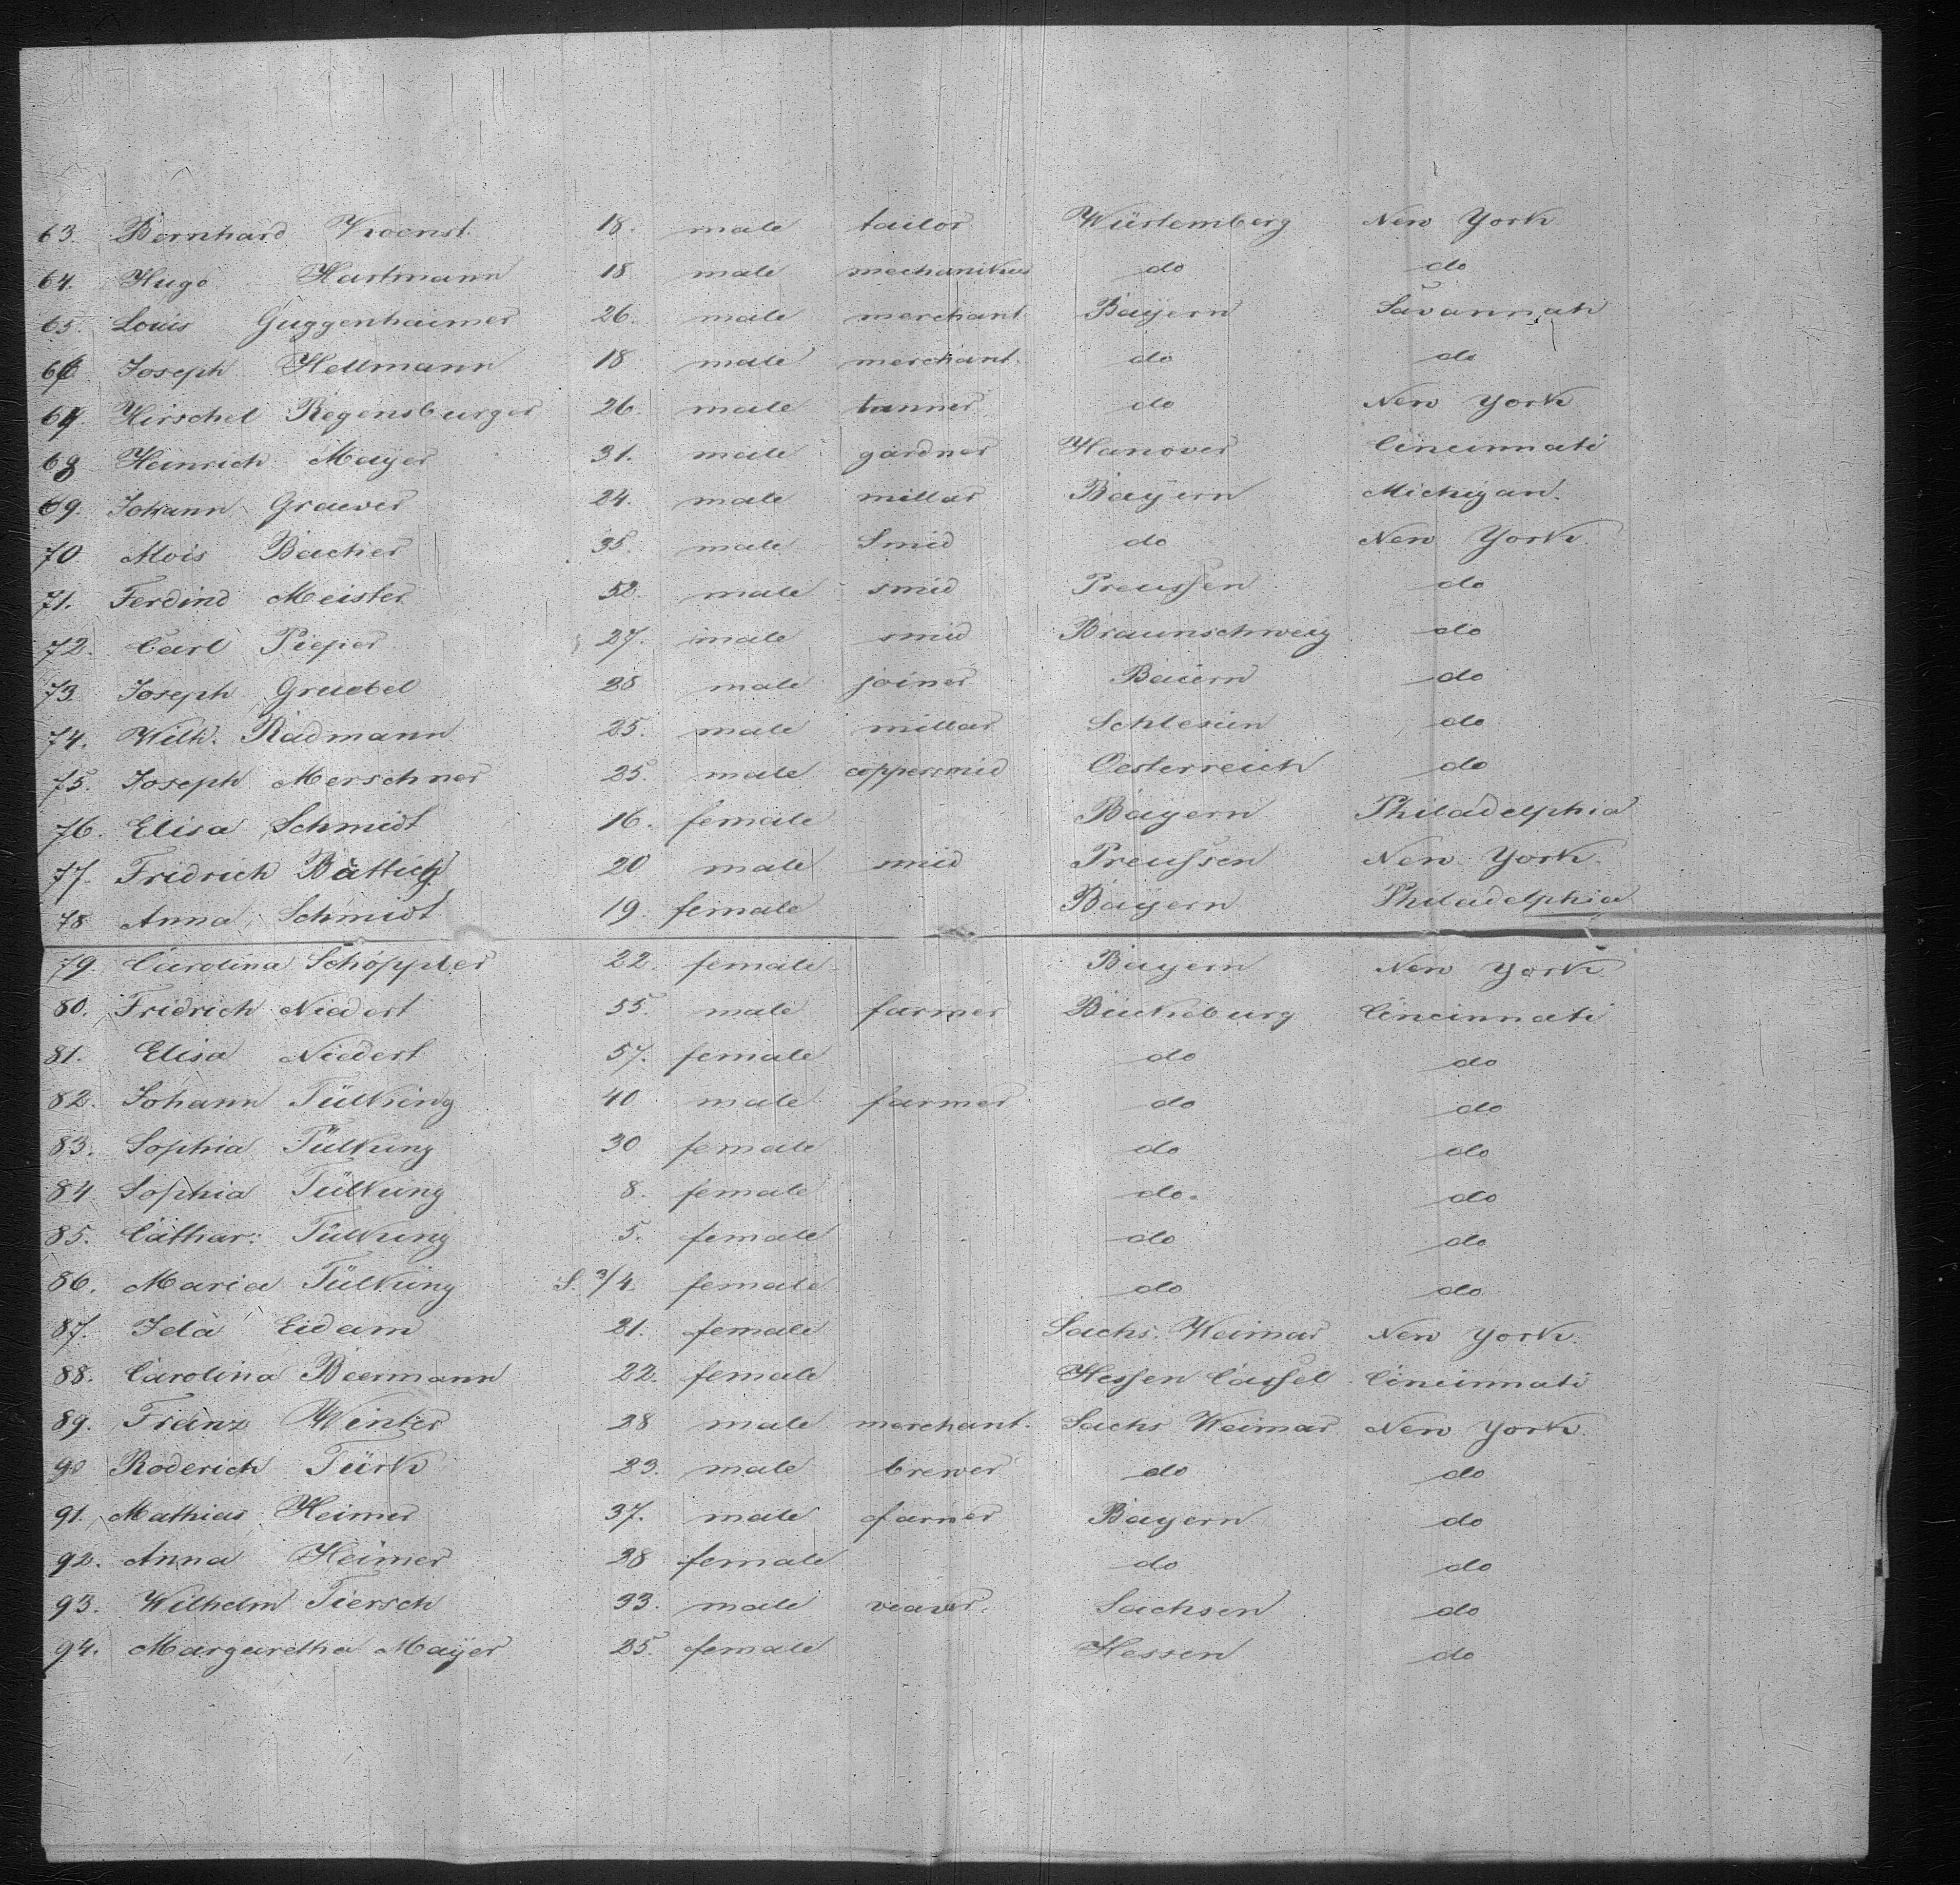 63. Bernhard Koenst. 18. male tailor Würtemberg New York
64. Hugo Hartmann 18. male mechanikus do do
65. Louis Guggenhaimer 26. male merchant Bayern Savannah
66. Joseph Hellmann 18 male merchant. do do
67. Hirschel Regensburger 26. male tanner do New York
68 Heinrich Mayer 31. male gardner Hanover Cincinnati
69. Johann Graever 24. male millar Bayern Michigan.
70 Alois Bacher 35. male Smid do New York.
71. Ferdind Meister 52. male smid Preussen do
72. Carl Pieper 27. male smid Braunschweig do
73 Joseph Gruebel 28 male joiner Baiern do
74. Wilh. Radmann 25. male millar Schlesien do
75. Joseph Merschner 25. male coppersmid Oesterreich do
76. Elisa Schmidt 16. female Bayern Philadelphia
77. Fridrich Bättich 20 male smid Preussen New York.
78 Anna Schmidt 19. female Bayern Philadelphia
79. Carolina Schöppler 22. female Bayern New York.
80. Fridrich Niedert 55. male farmer Bückeburg Cincinnati
81. Elisa Niedert 57. female do do
82. Johann Tülking 40 male farmer do do
83. Sophia Tülking 30 female do do
84 Sophia Tülking 8. female do. do
85. Cathar: Tülking 5. female do do
86. Maria Tülking S. 3/4. female do do
87. Ida Eidam 21. female Sachs. Weimar New York.
88. Carolina Beermann 22. female Hessen Cassel Cincinnati
89. Franz Winter 28 male merchant. Sachs Weimar New York.
90 Roderich Türk 23. male brewer do do
91. Mathias Heimer 37. male farmer Bayern do
92. Anna Heimer 28 female do do
93. Wilhelm Tiersch 33. male veaver. Sachsen do
94. Margaretha Mayer 25. female Hessen do